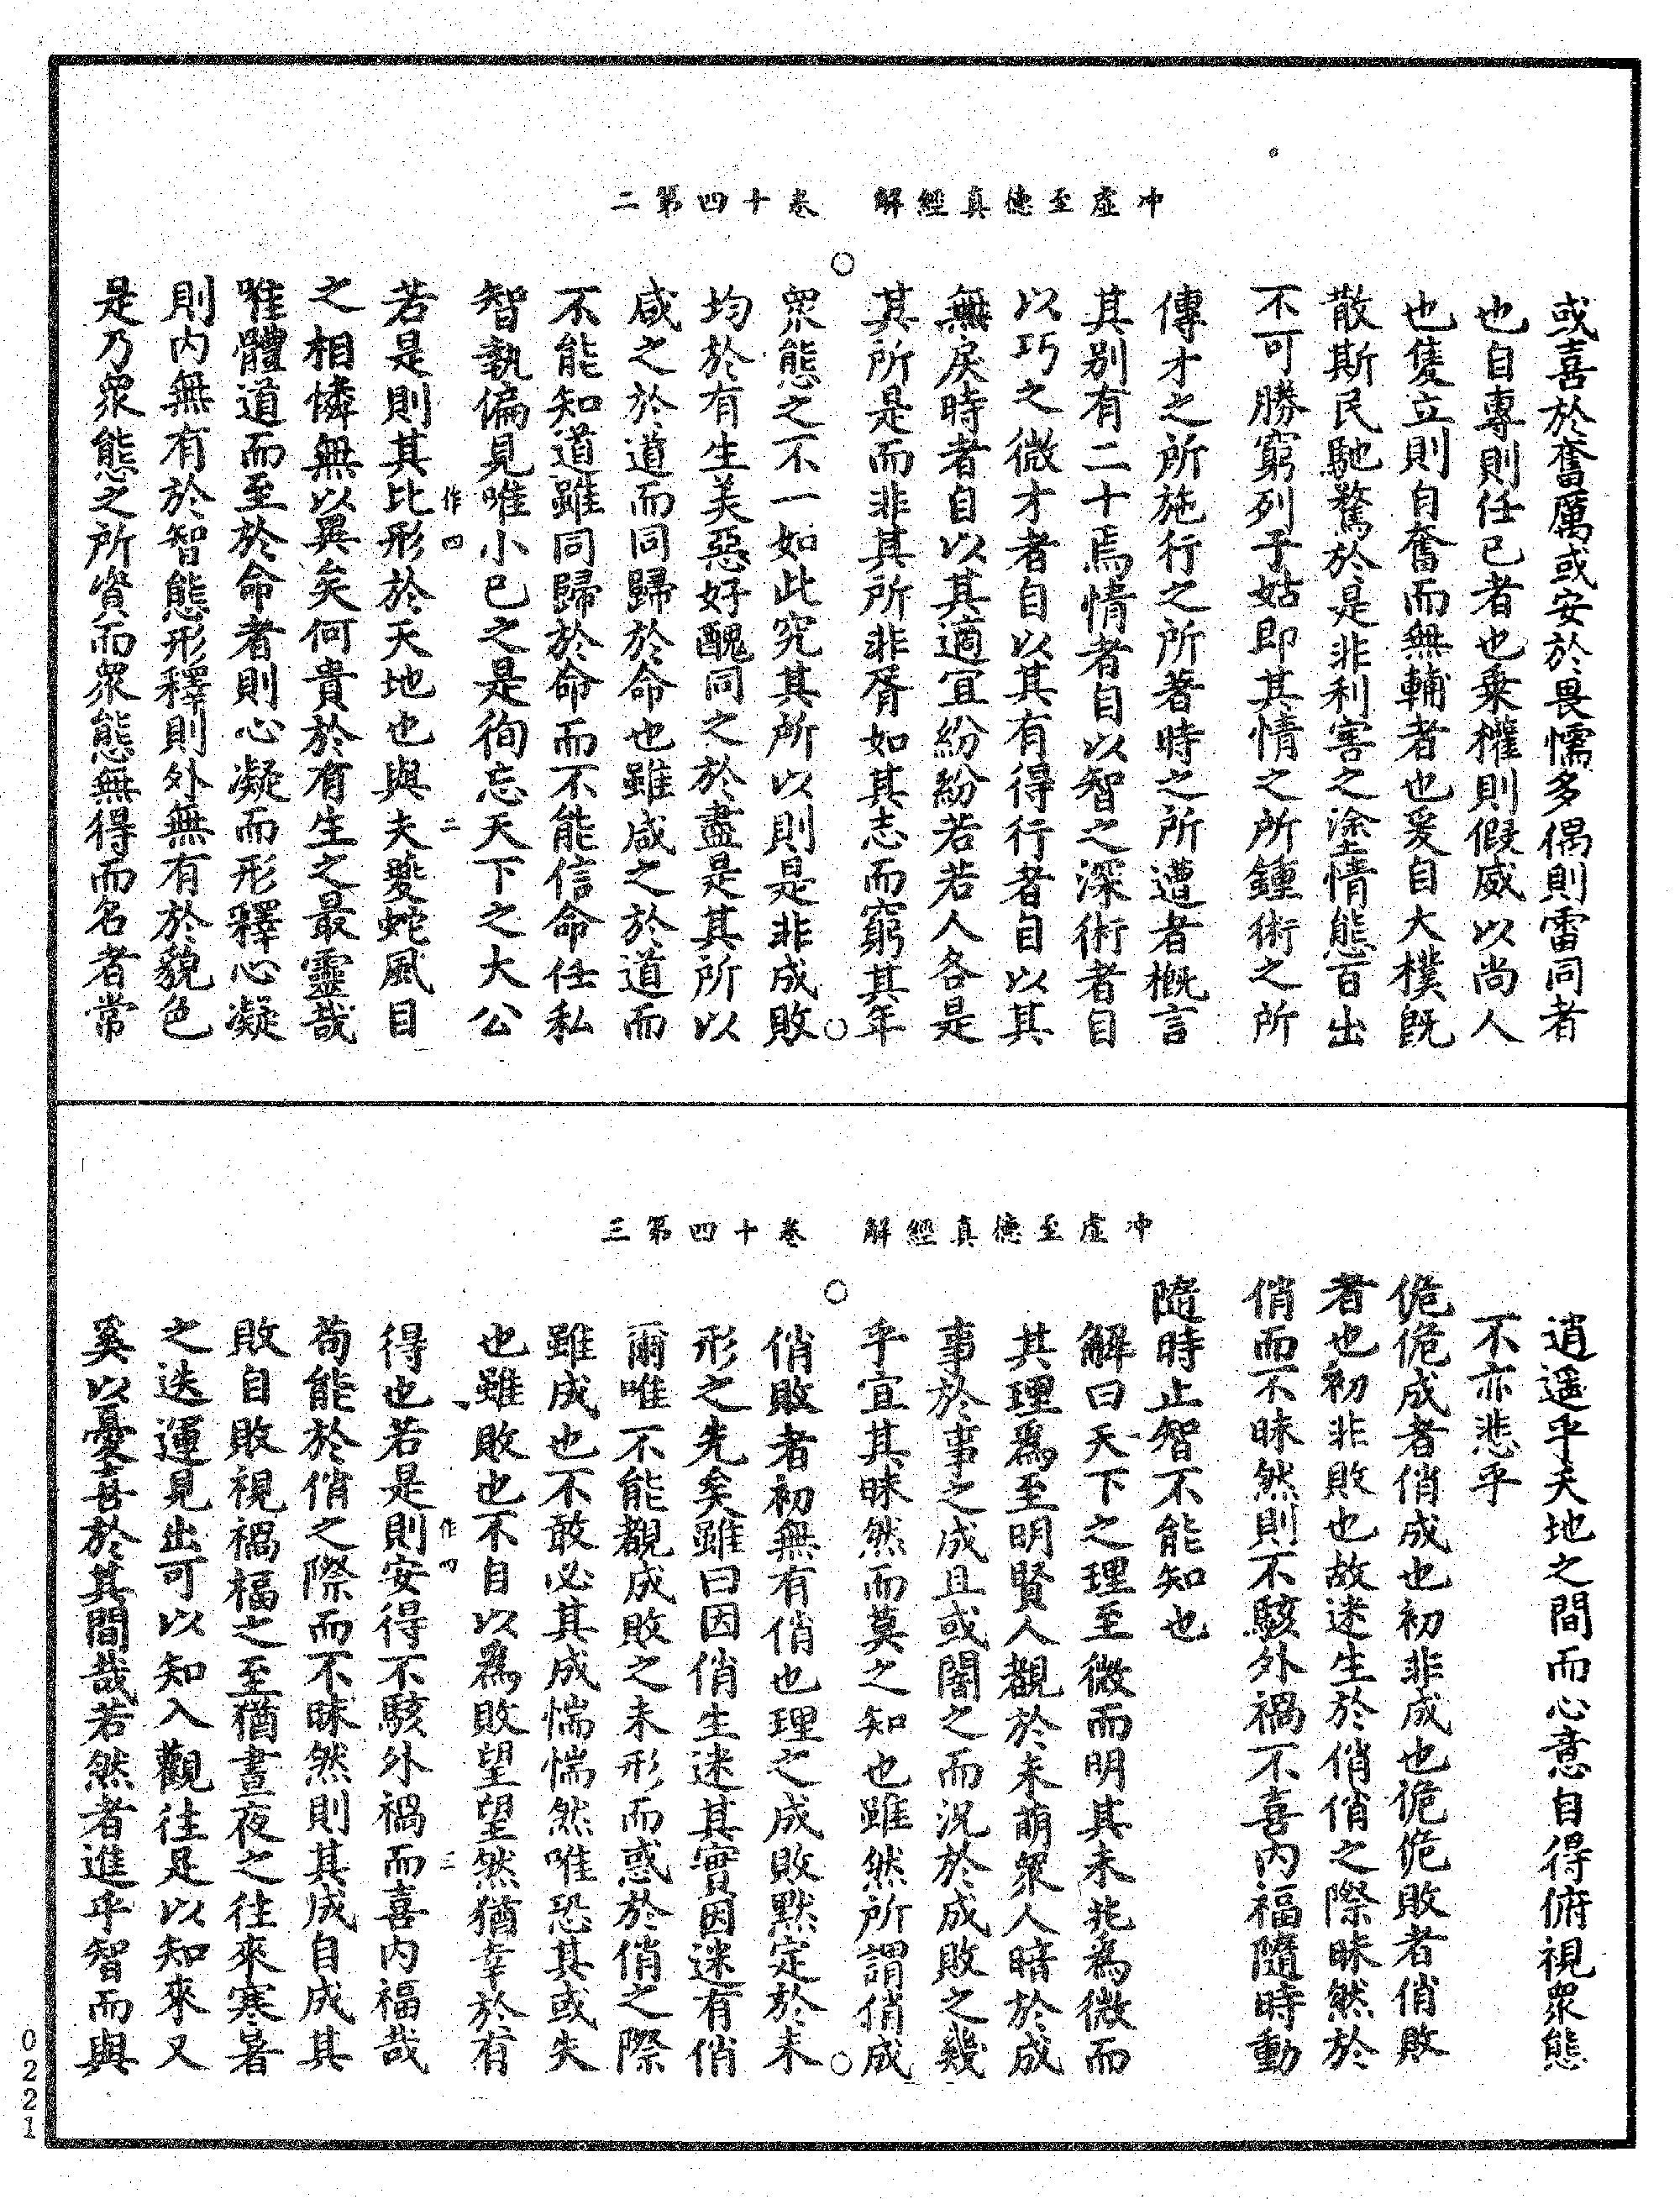 冲虛至德真經解　卷十四第二
或喜於奮厲或安於畏懦多偶則雷同者
也自專則任己者也乗權則假威以尚人
也隻立則自奮而無輔者也爰自大樸既
散斯民馳騖於是非利害之塗情態百出
不可勝窮列子姑即其情之所鍾術之所
傳才之所施行之所著時之所遭者概言
其别有二十焉情者自以智之深術者自
以巧之微才者自以其有得行者自以其
無戾時者自以其適宜紛紛若若人各是
其所是而非其所非胥如其志而窮其年
○
衆態之不一如此究其所以則是非成敗
均於有生美惡好醜同之於盡是其所以
咸之於道而同歸於命也雖咸之於道而
不能知道雖同歸於命而不能信命任私
智執偏見唯小己之是徇忘天下之大公
作四　二
若是則其比形於天地也與夫夔蛇風目
之相憐無以異矣何貴於有生之最靈哉
唯體道而至於命者則心凝而形釋心凝
則内無有於智態形釋則外無有於貌色
是乃衆態之所資而衆態無得而名者常
冲虛至德真經解　卷十四第三
逍遥乎天地之間而心意自得俯視衆態
不亦悲乎
佹佹成者俏成也初非成也佹佹敗者俏敗
者也初非敗也故迷生於俏俏之際昧然於
俏而不昧然則不駭外禍不喜内福隨時動
隨時止智不能知也
解曰天下之理至微而明其未兆為微而
其理為至明賢人觀於未萌衆人暗於成
事於事之成且或闇之而況於成敗之幾
乎宜其昧然而莫之知也雖然所謂俏成
○
俏敗者初無有俏也理之成敗默定於未
形之先矣雖曰因俏生迷其實因迷有俏
爾唯不能覩成敗之未形而惑於俏之際
雖成也不敢必其成惴惴然唯恐其或失
也雖敗也不自以為敗望望然猶幸於有
作四　三
得也若是則安得不駭外禍而喜内福哉
苟能於俏之際而不昧然則其成自成其
敗自敗視禍福之至猶晝夜之往來寒暑
之迭運見出可以知入觀往足以知來又
奚以憂喜於其間哉若然者進乎智而與
0221